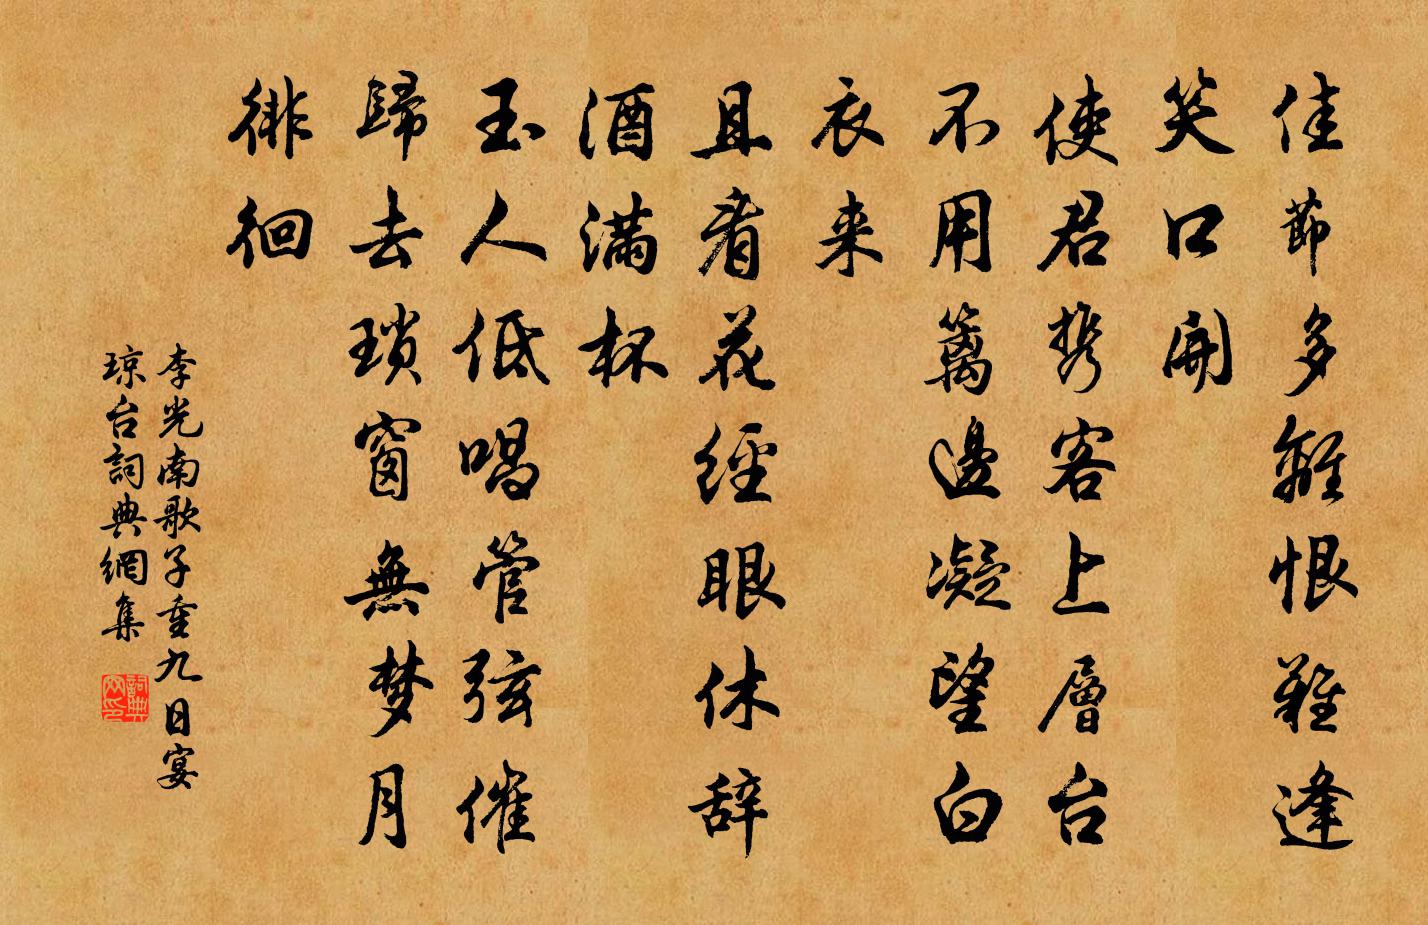 佳節多離恨難逢
笑口開
使君携客上層台
不用籬邊凝望白
衣来
且看花經眼休辞
酒滿杯
玉人低唱管弦催
歸去瑣窗無梦月
徘徊
李光南歌子重九日宴
琼台詞典網集
詞典网印